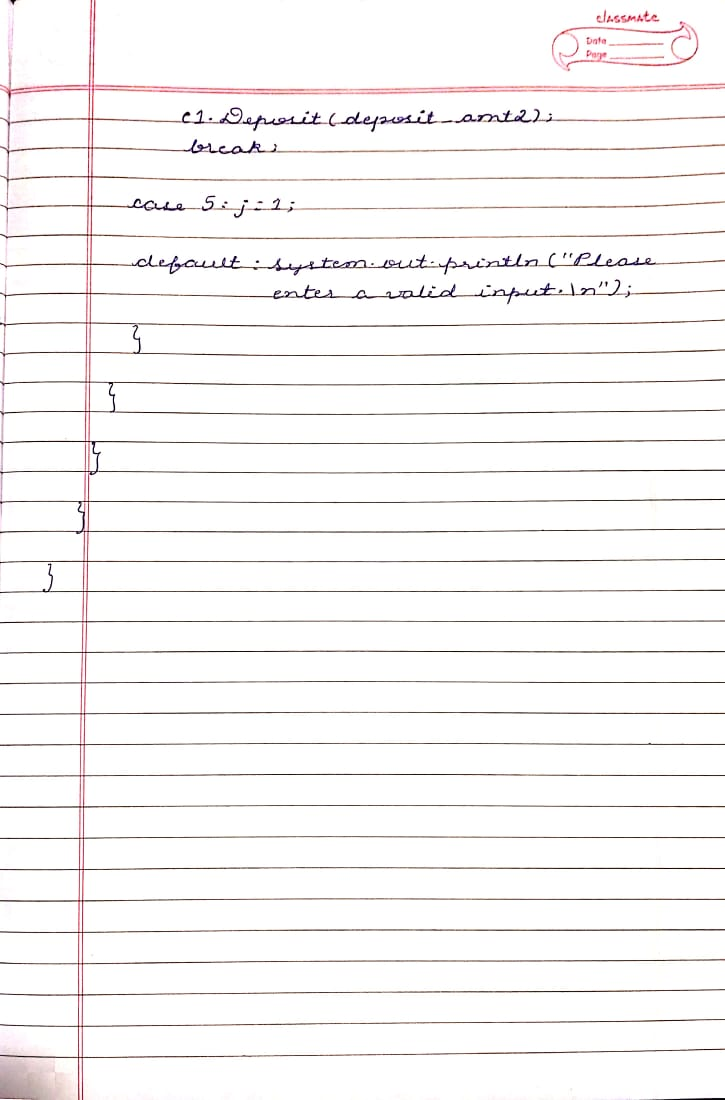 classmate
Date
Page
c1.Deposit(deposit_amt2);
break;
case 5: j=1;
default: system.out.println("Please
enter a valid input.\n");
}
}
}
}
}